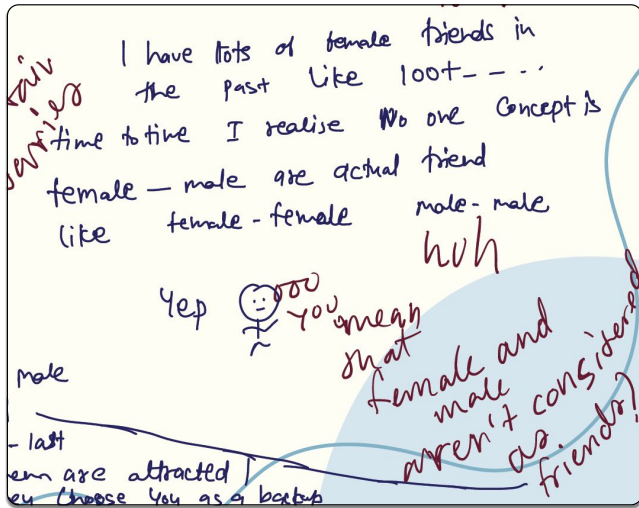 I have lots of female friends in
the past like 100+ - - ...
time to time I realise No one concept is
female - male are actual friend
like female-female male-male
huh
Yep
ooo
you mean
that
female and
male
aren't considered
as
friends?
varies
male
- last
are attracted
choose you as a backup